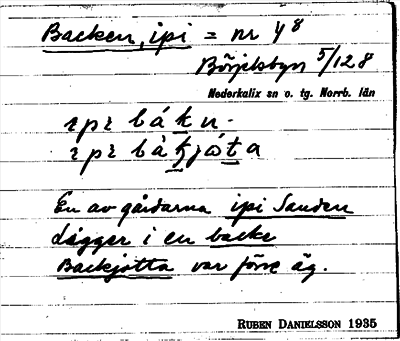 Backen, ipi = nr 4⁸
Börjelsbyn 5/12 8
Nederkalix sn o. tg. Norrb. län
ɪpɪ bákn.
ɪpɪ bàkjót a
En av gårdarna ipi Sanden
ligger i en backe
Backjotta var förre äg.
RUBEN DANIELSSON 1935